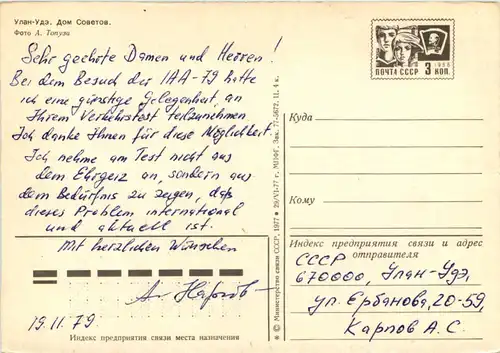 Улан-Удэ. Дом Советов.
Фото А. Топуза
Sehr geehrte Damen und Herren!
Bei dem Besuch der IAA-79 hatte
ich eine günstige Gelegenheit, an
Ihrem Verkehrstest teilzunehmen
Ich danke Ihnen für diese Möglichkeit!
Ich nehme am Test nicht aus
dem Ehrgeiz an, sondern aus
dem Bedürfnis zu zeigen, daß
dieses Problem international
und aktuell ist.
Mit herzlichen Wünschen
19.11.79
Индекс предприятия связи места назначения
© Министерство связи СССР, 1977 • 29/VI-77 г. МПФГ. Зак. 77-5672. Ц. 4 к.
ПОЧТА СССР 3 КОП.
1966
Куда
Кому
Индекс предприятия связи и адрес
отправителя
СССР
670000, Улан-Удэ,
ул. Ербанова, 20-59,
Карпов А.С.